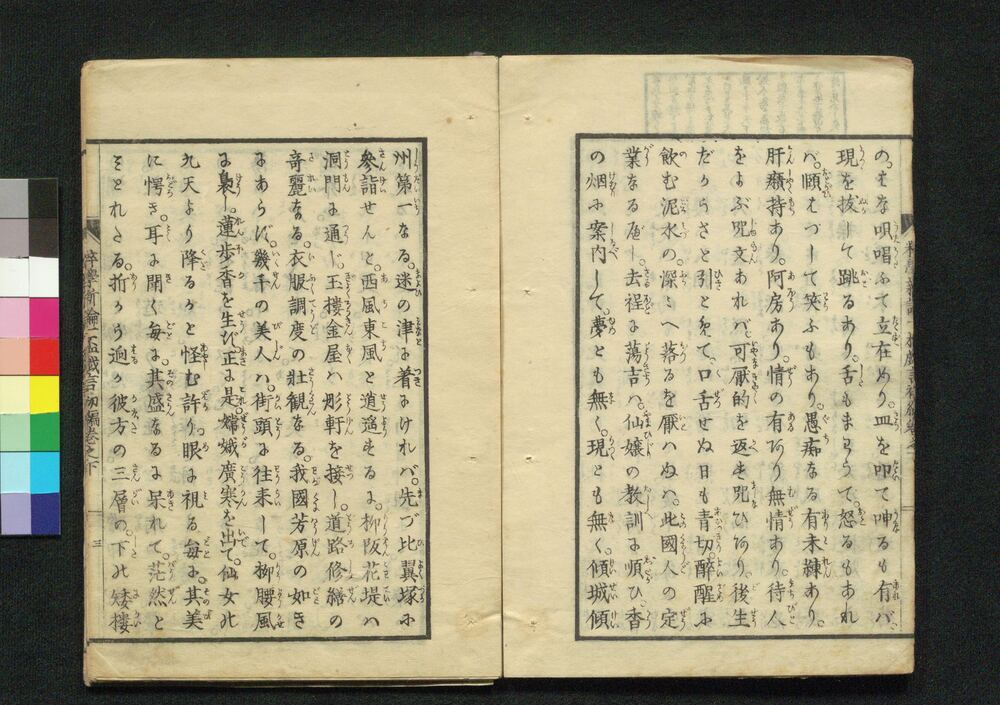 の。そな唄唱ふて立在めり。皿を叩て呻るも有バ
現を拔して跳るあり。舌もまとうて怒るもあれ
バ。頤はづして笑ふもあり。愚痴なる有。未練あり。
肝癪持あり。阿房あり。情の有あり無情あり。待人
をよぶ咒文あれバ。可厭的を返す咒ひあり。後生
だからさと引ときハて。口舌せぬ日も青切。醉醒に
飲む泥水の。深きへ落るを厭ハぬハ。此國人の定
業なる歴し。去程に蕩吉ハ。仙孃の教訓に順ひ香
の烟に案内して。夢とも無く。現とも無く。傾城傾
州第一なる。迷の津に着にけれバ。先づ比翼塚に
參詣せんと。西風東風と逍遙するに。柳阪花堤ハ
洞門に通じ。玉樓金屋ハ彫軒を接し。道路修繕の
奇麗なる。衣服調度の壯観なる。我國芳原の如き
にあらず。幾千の美人ハ。街頭に往来して。柳腰風
に裊し。蓮歩香を生ず。正に是嫦娥廣寒を出て。仙女北
九天より降るかと怪む許り。眼に視る毎に。其美
に愕き。耳に聞く毎に。其盛なるに呆れて。茫然と
そとれたる折から。迥か彼方の三層の。下た矮樓
粹學新論一盃戯言初編巻之下
三